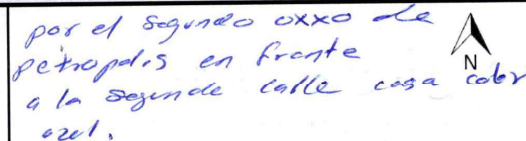 por el segundo oxxo de
petropolis en frente
a la segunde calle casa color
azul.
N